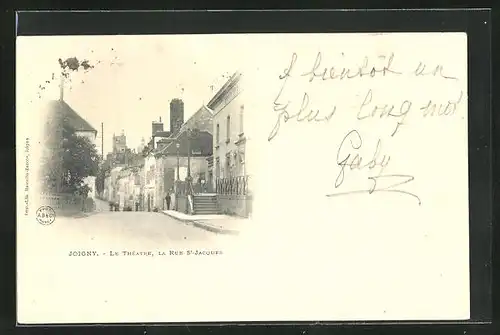 A bientôt un
plus long mot
Gaby
JOIGNY. - LE THÉATRE, LA RUE St-JACQUES